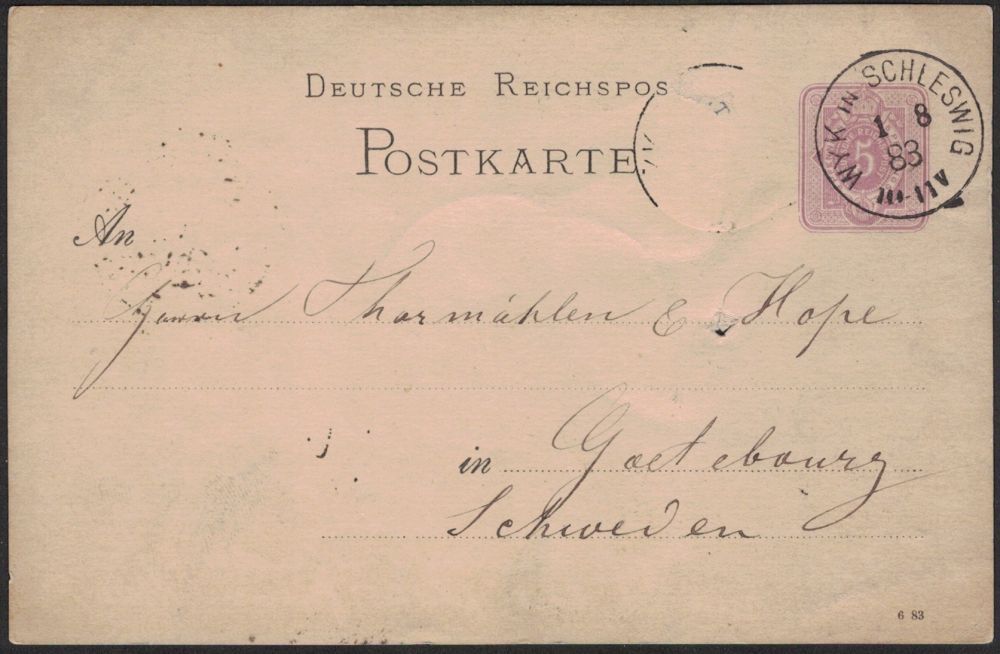 DEUTSCHE REICHSPOS
POSTKARTE
WYK IN SCHLESWIG
1 8
83
10-11V
5
An
Herrn Thormählen & Hope
in Goetebourg
Schweden
6 83